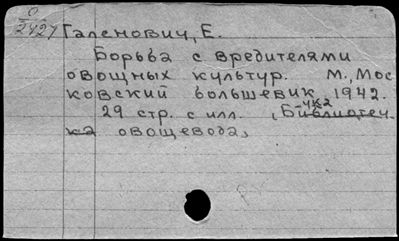 0
2427
Галенович, Е.
Борьба с вредителями
овощных культур. М., Мос
ковский большевик, 1942.
29 стр. с илл. (Библиотеч
ка овощевода)